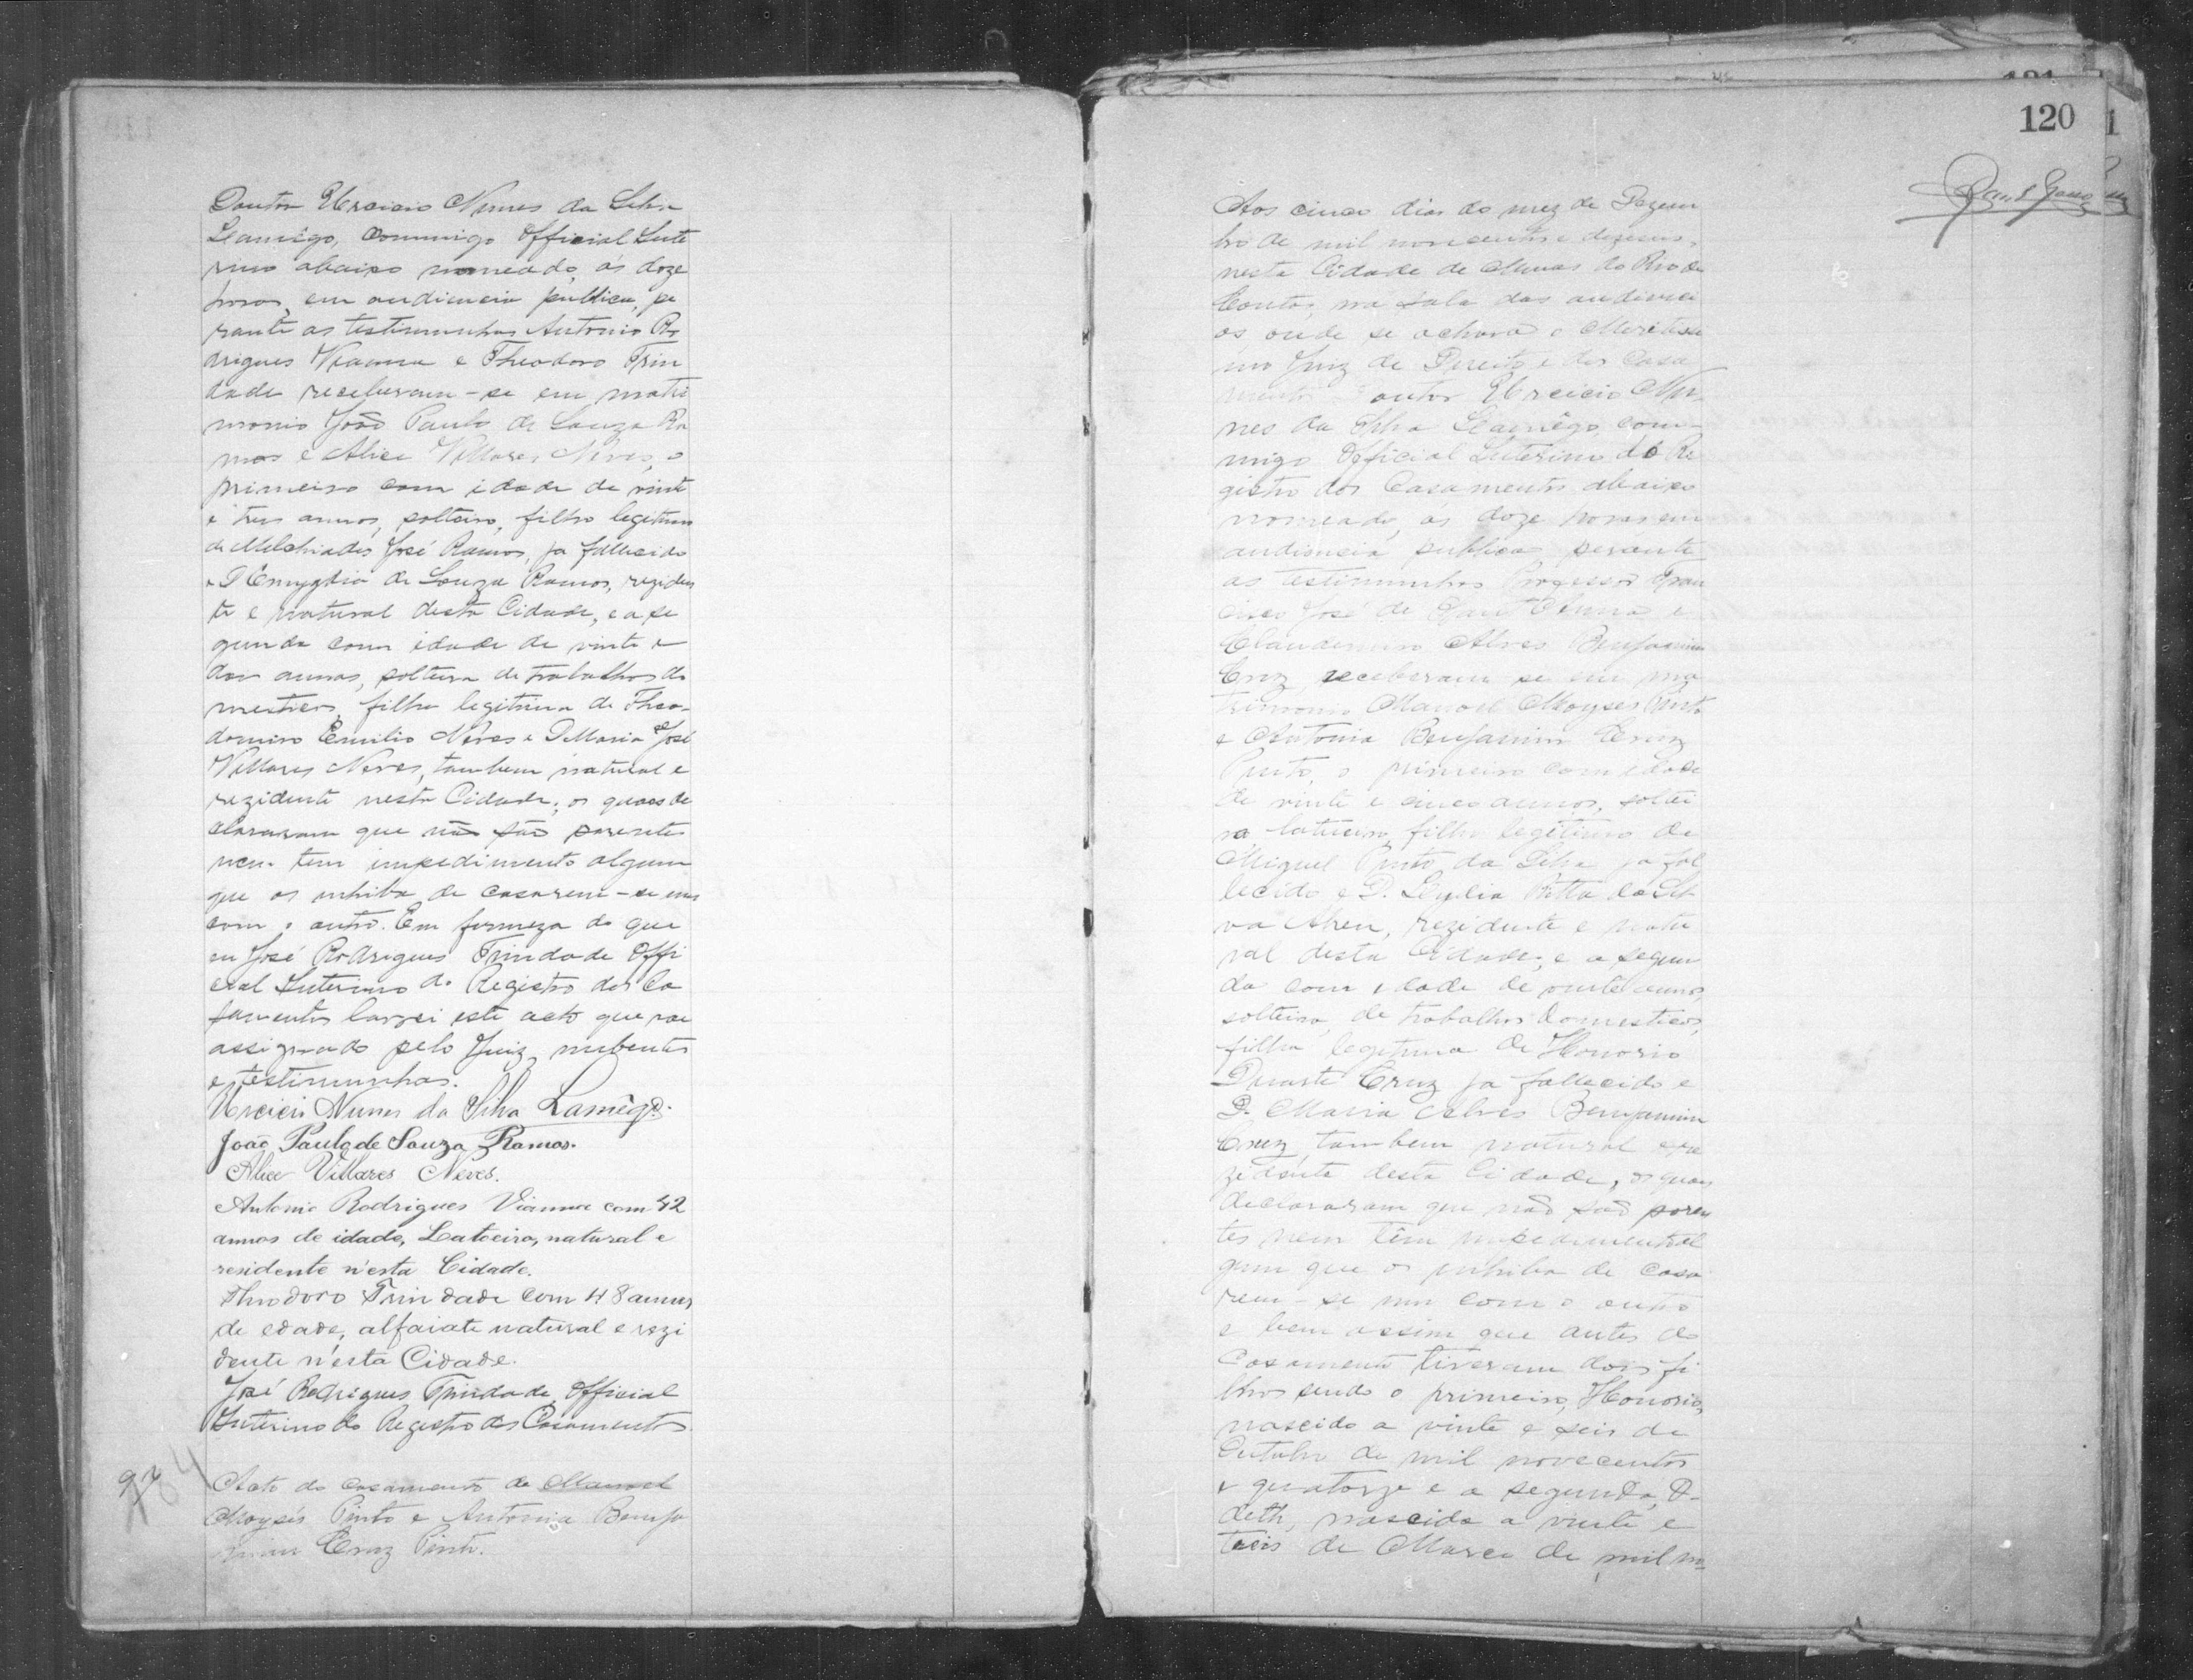 Doutor Urcicio Nunes da Silva
Lamêgo, commigo Official Inte
rino abaixo nomeado, ás doze
horas, em audiencia publica, pe
rante as testimunhas Antonio Ro
drigues Vianna e Theodoro Trin
dade receberam-se em matri
monio João Paulo de Souza Ra
mos e Alice Villares Neves, o
primeiro com idade de vinte
e tres annos, solteiro, filho legitimo
de Melchiades José Ramos, ja fallecido
e D Emygdia de Souza Ramos, reziden
te e natural desta Cidade, e a se
gunda com idade de vinte e
dois annos, solteira de trabalhos do
mesticos, filha legitima de Theo-
domiro Emilio Neves e D Maria José
Villares Neves, tambem natural e
rezidente nesta Cidade; os quaes de
clararam que não são parentes
nem tem impedimento algum
que os inhiba de casarem-se um
com o outro. Em firmeza do que
eu José Rodrigues Trindade Offi
cial Interino do Registro dos Ca
samentos lavrei este acto que vae
assignado pelo Juiz, nubentes
e testimunhas.
Urcicio Nunes da Silva Lamêgo.
João Paulo de Souza Ramos.
Alice Villares Neves.
Antonio Rodrigues Vianna com 42
annos de idade, Latoeiro, natural e
residente n'esta Cidade.
Theodoro Trindade com 48 annos
de edade, alfaiate natural e rezi
dente n'esta Cidade.
José Rodrigues Trindade, Official
Interino do Registro dos Casamentos
Acto do casamento de Manoel
Moysés Pinto e Antonia Benja
min Cruz Pinto.
120
Aos cinco dias do mez de Dezem
bro de mil novecentos e dezeseis,
nesta Cidade de Minas do Rio de
Contas, na sala das audienci
as, onde se achava o Meritissi
mo Juiz de Direito e dos Casa
mentos Doutor Urcicio Nu-
nes da Silva Lamêgo, com-
migo Official Interino do Re
gistro dos Casamentos abaixo
nomeado, ás doze horas em
audiencia publica perante
as testimunhas Professor Fran
cisco José de Sant'Anna e
Claudemiro Alves Benjamin
Cruz, receberam se em ma
trimonio Manoel Moyses Pinto
e Antonia Benjamin Cruz
Pinto, o primeiro com idade
de vinte e cinco annos, soltei
ro latoeiro, filho legitimo de
Miguel Pinto da Silva ja fal
lecido e D. da Sil
va Abreu, rezidente e natu
ral desta Cidade; e a segun
da com idade de vinte annos,
solteira, de trabalhos domesticos,
filha legitima de Honorio
Duarte Cruz ja fallecido e
D. Maria Alves Benjamin
Cruz, tambem natural e re
zidente desta Cidade, os quaes
declararam que não são paren
tes nem têm impedimento al
gum que os inhiba de casa
rem-se um com o outro
e bem assim que antes do
casamento tiveram dois fi
lhos sendo o primeiro, Honorio,
nascido a vinte e seis de
Outubro de mil novecentos
e quatorze e a segunda, O-
deth, nascida a vinte e
treis de Março de mil no-